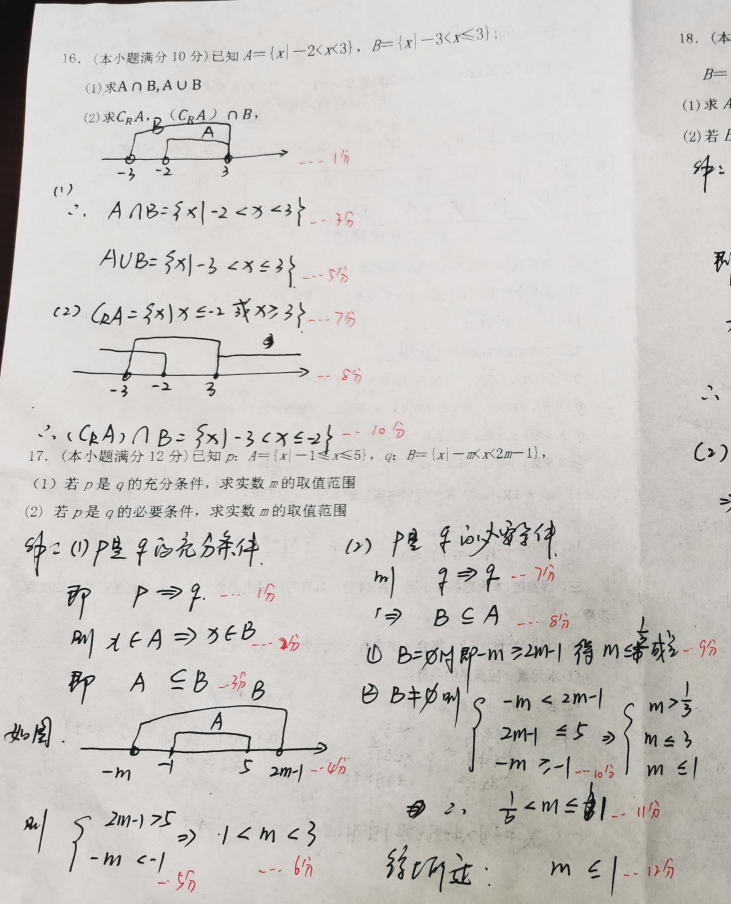 16. (本小题满分 10 分)已知 A={x|-2<x<3}, B={x|-3<x≤3};
(1)求A∩B,A∪B
(2)求C_RA, (C_RA) ∩B,
B
A
-3 -2 3 ---1分
(1)
∴ A∩B={x|-2<x<3} --3分
A∪B={x|-3<x≤3} ---5分
(2) C_RA={x|x≤-2 或x≥3} ---7分
-3 -2 3 --8分
∴(C_RA)∩B={x|-3<x≤-2} --10分
17. (本小题满分 12 分)已知 p: A={x|-1≤x≤5}, q: B={x|-m<x<2m-1},
(1) 若 p 是 q 的充分条件, 求实数 m 的取值范围
(2) 若 p 是 q 的必要条件, 求实数 m 的取值范围
解: (1) P是q的充分条件
即 P⇒q. ---1分
则 x∈A⇒x∈B ---2分
即 A⊆B --3分
如图.
B
A
-m -1 5 2m-1 --4分
则 { 2m-1>5
-m<-1 ⇒ 1<m<3
--5分 ---6分
(2) P是q的必要条件
则 q⇒q --7分
⇒ B⊆A ---8分
① B=∅时即-m≥2m-1 得 m≤1/3成立 --9分
② B≠∅则 { -m<2m-1
2m-1≤5
-m≥-1 --10分
⇒ { m>1/3
m≤3
m≤1
∴ 1/3<m≤1 --11分
综上所述: m≤1 --12分
18. (本
B=
(1)求 A
(2)若 B
解:
即
∴
(2)
⇒